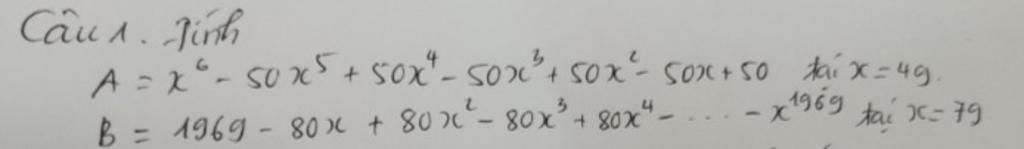 Câu 1. Tính
A = x⁶ - 50x⁵ + 50x⁴ - 50x³ + 50x² - 50x + 50 tại x = 49.
B = 1969 - 80x + 80x² - 80x³ + 80x⁴ - .... - x¹⁹⁶⁹ tại x = 79